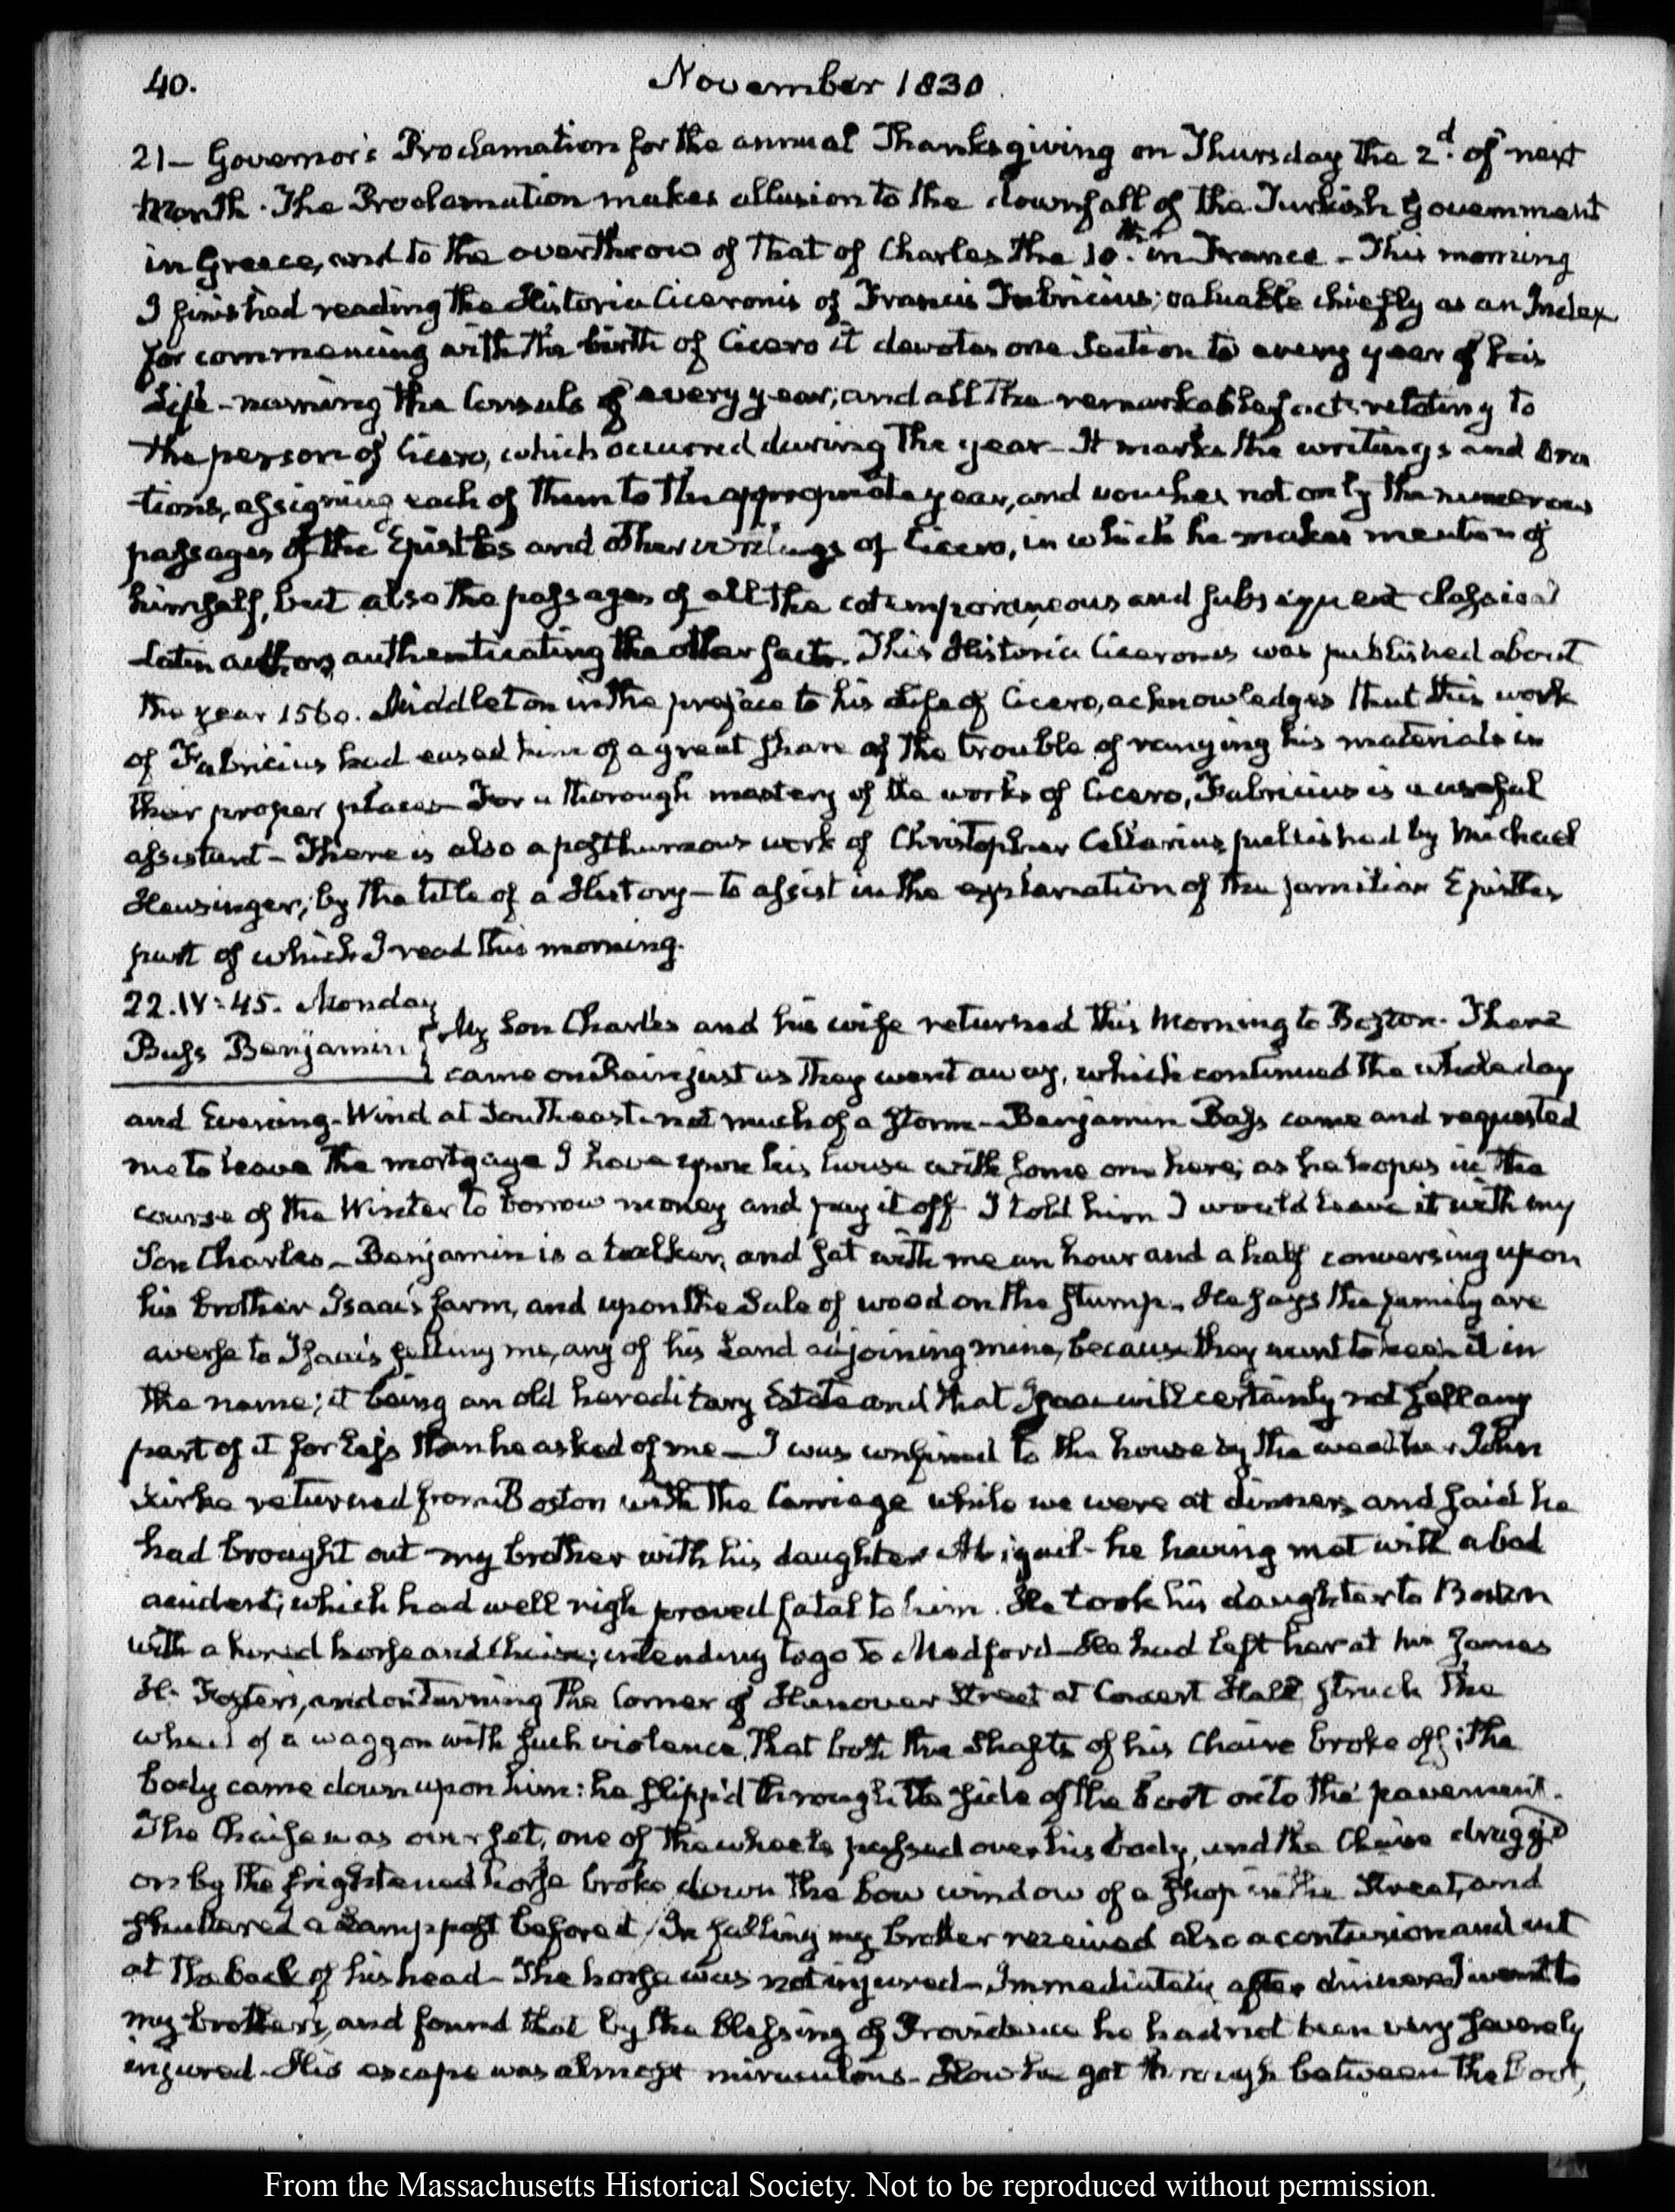 40.
November 1830.
21— Governor's Proclamation for the annual Thanksgiving on Thursday the 2d. of next
Month. The Proclamation makes allusion to the downfall of the Turkish Government
in Greece, and to the overthrow of that of Charles the 10th. in France - This morning
I finished reading the Historia Ciceronis of Francis Fabricius; valuable chiefly as an Index
for commencing with the birth of Cicero it devotes one Section to every year of his
Life - naming the Consuls of every year; and all the remarkable facts relating to
the person of Cicero, which occurred during the year - It marks the writings and Ora
tions, assigning each of them to the appropriate year, and vouches not only the numerous
passages of the Epistles and other writings of Cicero, in which he makes mention of
himself, but also the passages of all the cotemporaneous and subsequent classical
Latin authors, authenticating the other facts. This Historia Ciceronis was published about
the year 1560. Middleton in the preface to his Life of Cicero, acknowledges that this work
of Fabricius had eased him of a great share of the trouble of ranging his materials in
their proper places - For a thorough mastery of the works of Cicero, Fabricius is a useful
assistant - There is also a posthumous work of Christopher Cellarius, published by Michael
Heusinger, by the title of a History - to assist in the explanation of the familiar Epistles
part of which I read this morning.
22. IV: 45. Monday
Bass Benjamin
My Son Charles and his wife returned this Morning to Boston. There
came on Rain just as they went away, which continued the whole day
and Evening - Wind at Southeast - not much of a storm - Benjamin Bass came and requested
me to leave the mortgage I have upon his house with some one here; as he hopes in the
course of the Winter to borrow money and pay it off. I told him I would leave it with my
Son Charles - Benjamin is a talker, and sat with me an hour and a half conversing upon
his brother Isaac's farm, and upon the Sale of wood on the stump. He says the family are
averse to Isaac's selling me, any of his Land adjoining mine, because they want to keep it in
the name; it being an old hereditary Estate and that Isaac will certainly not sell any
part of it for less than he asked of me — I was confined to the house by the weather. John
Kirke returned from Boston with the Carriage while we were at dinner, and said he
had brought out my brother with his daughter Abigail - he having met with a bad
accident; which had well nigh proved fatal to him. He took his daughter to Boston
with a hired horse and Chaise; intending to go to Medford - He had left her at Mr James
H. Foster's, and on turning the Corner of Hanover Street at Concert Hall struck the
wheel of a waggon with such violence, that both the Shafts of his Chaise broke off; the
body came down upon him: he slipp'd through the side of the boot onto the pavement.
The Chaise was overset, one of the wheels passed over his body, and the Chaise dragg'd
on by the frightened horse broke down the bow window of a shop in the Street, and
shattered a Lamp post before it. In falling my brother received also a contusion and cut
at the back of his head - The horse was not injured - Immediately after dinner I went to
my brother's, and found that by the blessing of Providence he had not been very severely
injured - His escape was almost miraculous - How he got through between the boot,
From the Massachusetts Historical Society. Not to be reproduced without permission.